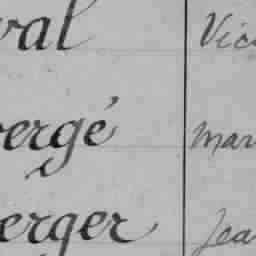 val Vic
ergé Mar
erger Jea